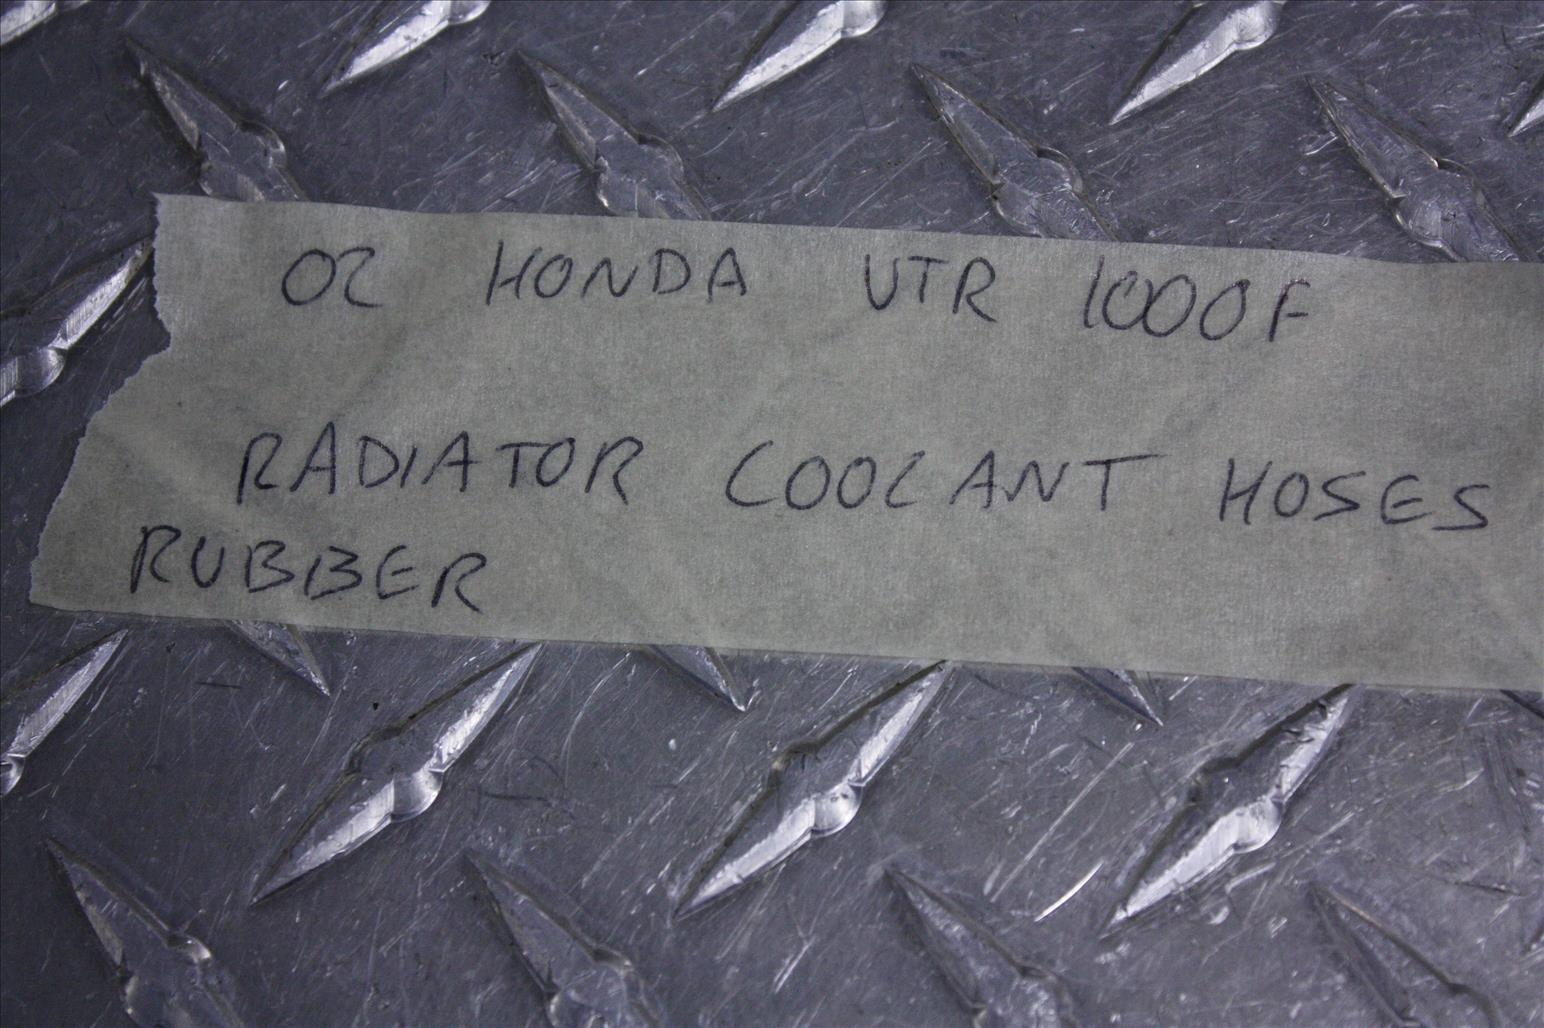 02 HONDA VTR 1000F
RADIATOR COOLANT HOSES
RUBBER